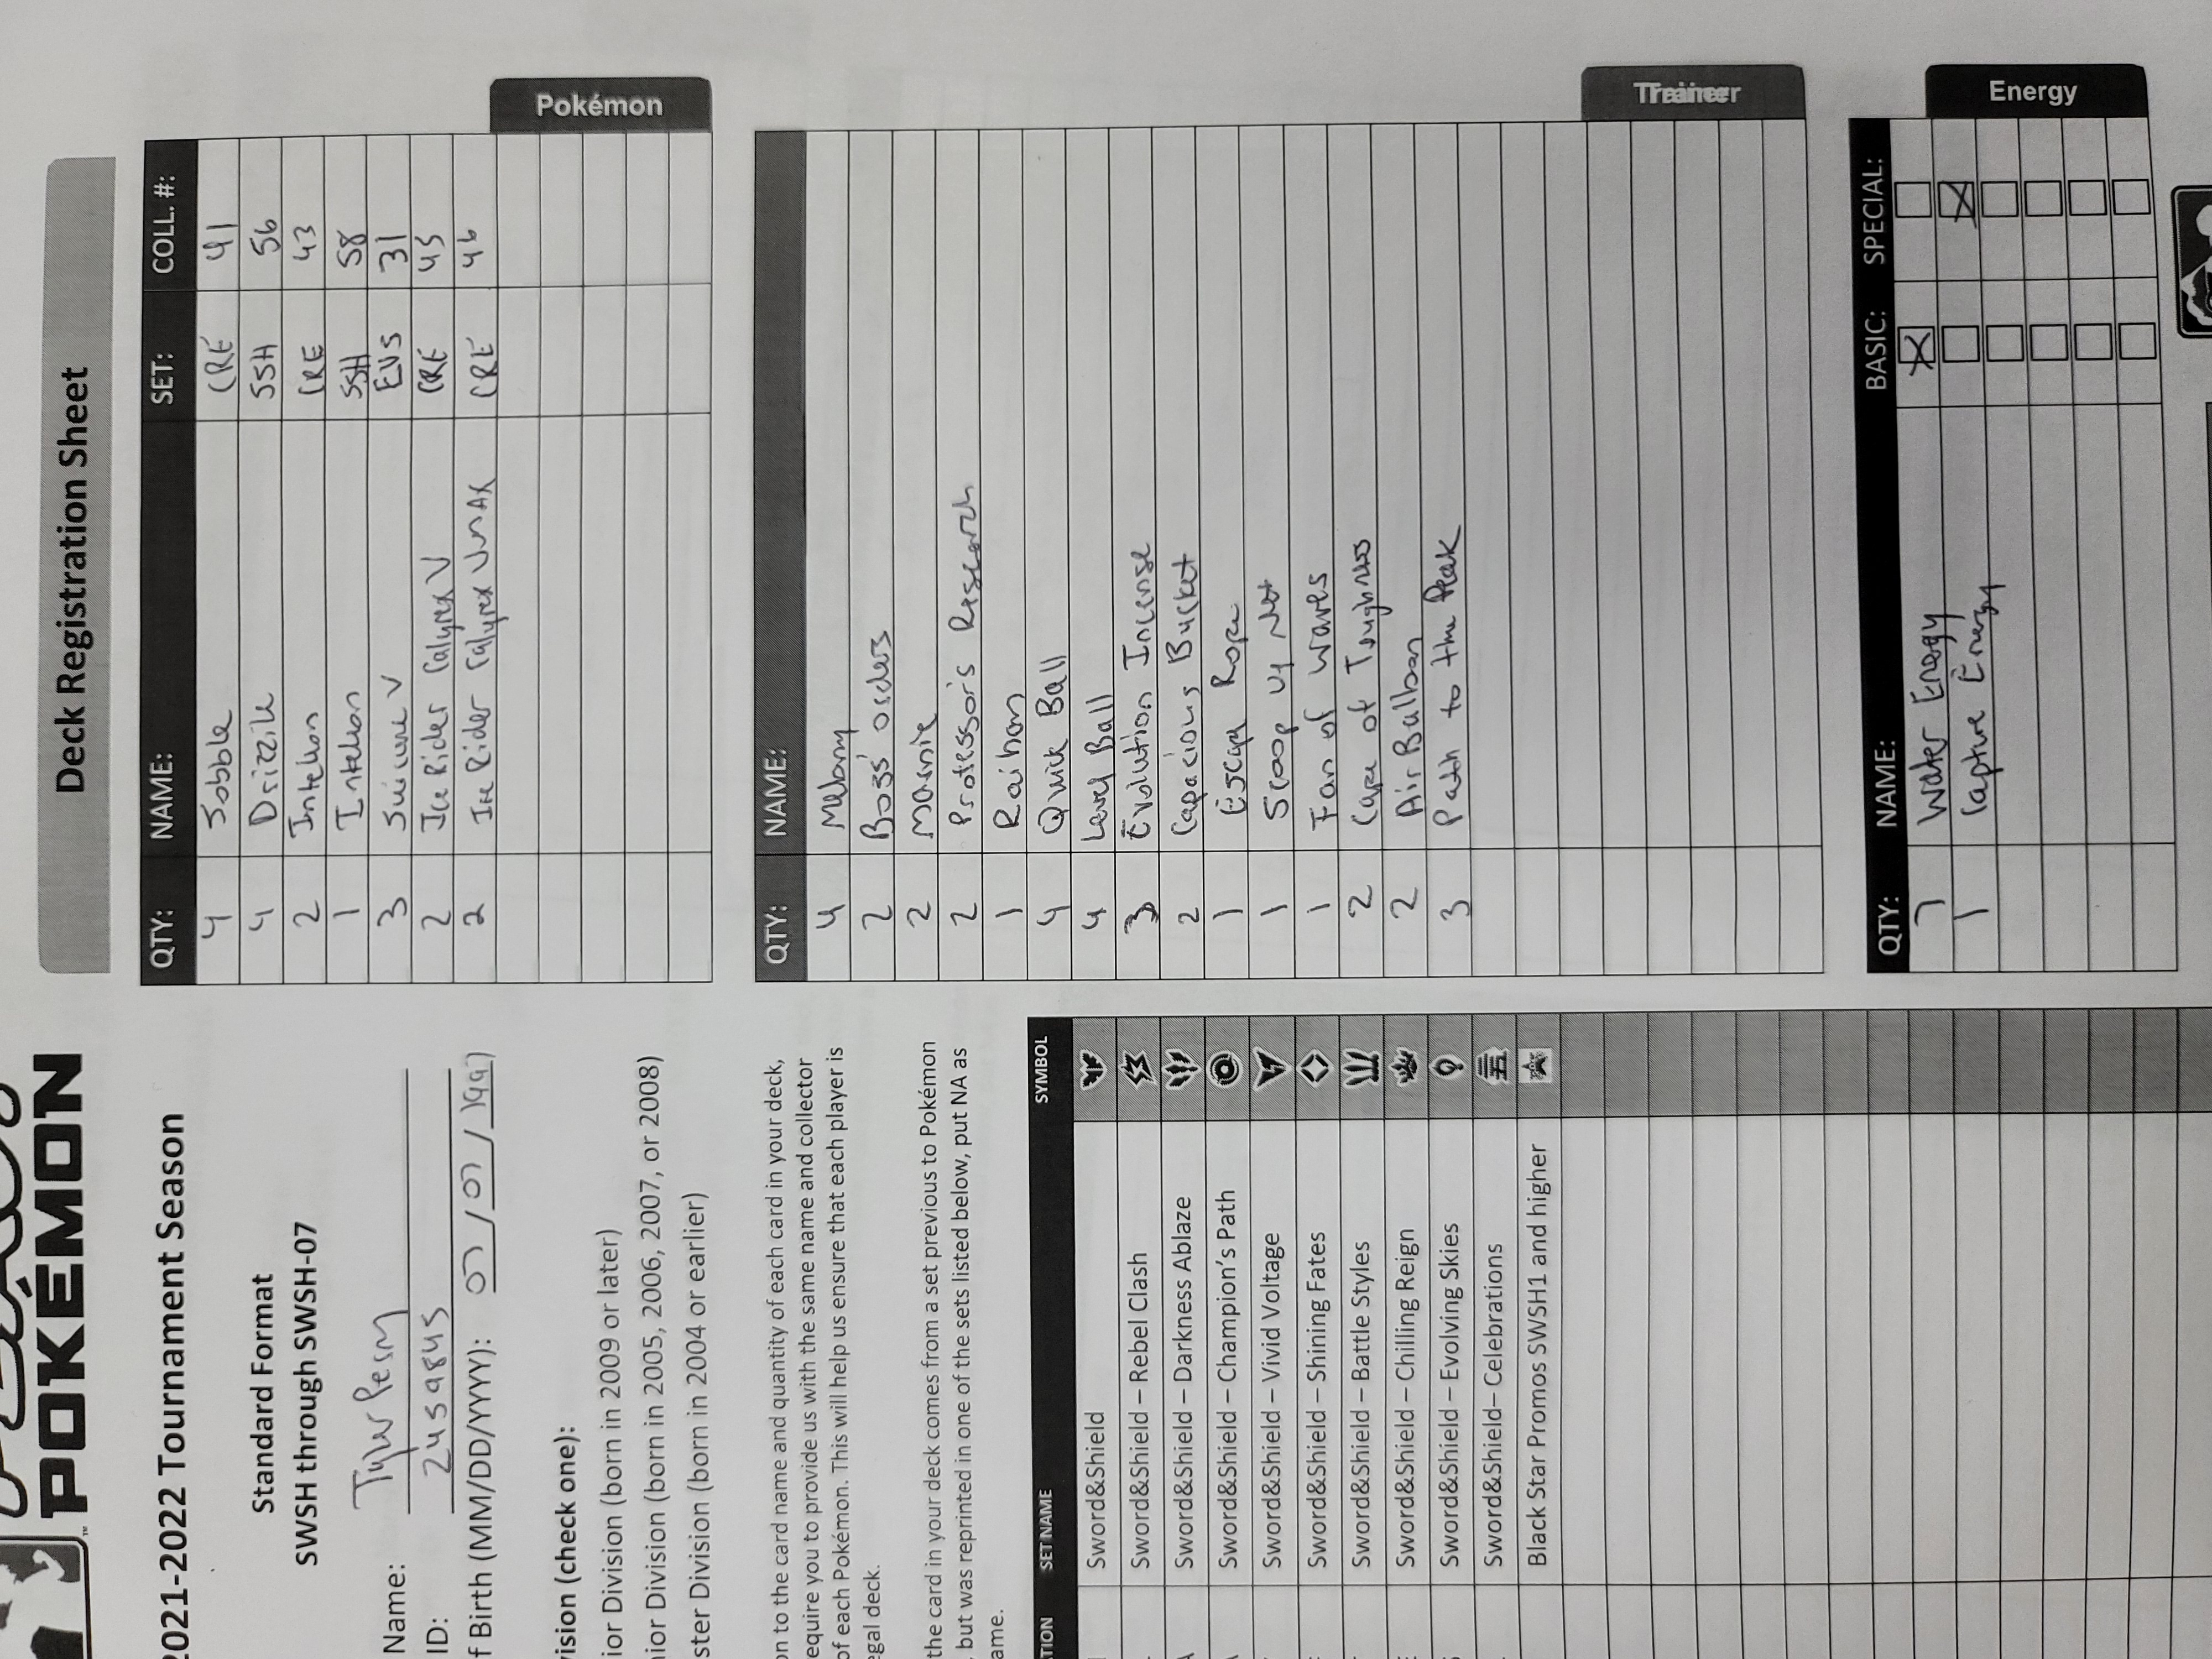 PLAY!
POKÉMON
™
2021-2022 Tournament Season
Standard Format
SWSH through SWSH-07
Name: Tyler Perry
ID: 2459845
f Birth (MM/DD/YYYY): 07/07/1997
ision (check one):
ior Division (born in 2009 or later)
nior Division (born in 2005, 2006, 2007, or 2008)
ster Division (born in 2004 or earlier)
on to the card name and quantity of each card in your deck,
equire you to provide us with the same name and collector
of each Pokémon. This will help us ensure that each player is
egal deck.
the card in your deck comes from a set previous to Pokémon
, but was reprinted in one of the sets listed below, put NA as
ame.
TION SET NAME SYMBOL
Sword&Shield
Sword&Shield – Rebel Clash
Sword&Shield – Darkness Ablaze
Sword&Shield – Champion's Path
Sword&Shield – Vivid Voltage
Sword&Shield – Shining Fates
Sword&Shield – Battle Styles
Sword&Shield – Chilling Reign
Sword&Shield – Evolving Skies
Sword&Shield– Celebrations
Black Star Promos SWSH1 and higher
Deck Registration Sheet
QTY: NAME: SET: COLL. #:
4 Sobble CRE 41
4 Drizzile SSH 56
2 Inteleon CRE 43
1 Inteleon SSH 58
3 Suicune V EVS 31
2 Ice Rider Calyrex V CRE 45
2 Ice Rider Calyrex VMAX CRE 46
Pokémon
QTY: NAME:
4 Melony
2 Boss' orders
2 Marnie
2 Professor's Research
1 Raihan
4 Quick Ball
4 Level Ball
3 Evolution Incense
2 Capacious Bucket
1 Escape Rope
1 Scoop Up Net
1 Fan of Waves
2 Cape of Toughness
2 Air Balloon
3 Path to the Peak
Trainer
QTY: NAME: BASIC: SPECIAL:
7 Water Energy
1 Capture Energy
Energy